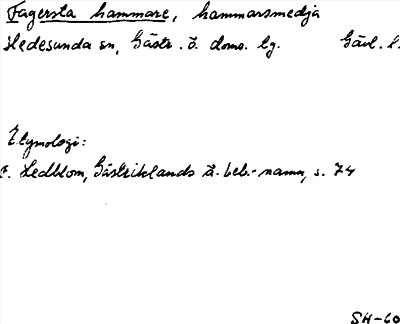 Fagersta hammare, hammarsmedja
Hedesunda sn, Gästr. ö. doms. lg. Gävl. l.
Etymologi:
F. Hedblom, Gästriklands ä. beb.-namn, s. 74
SH-60